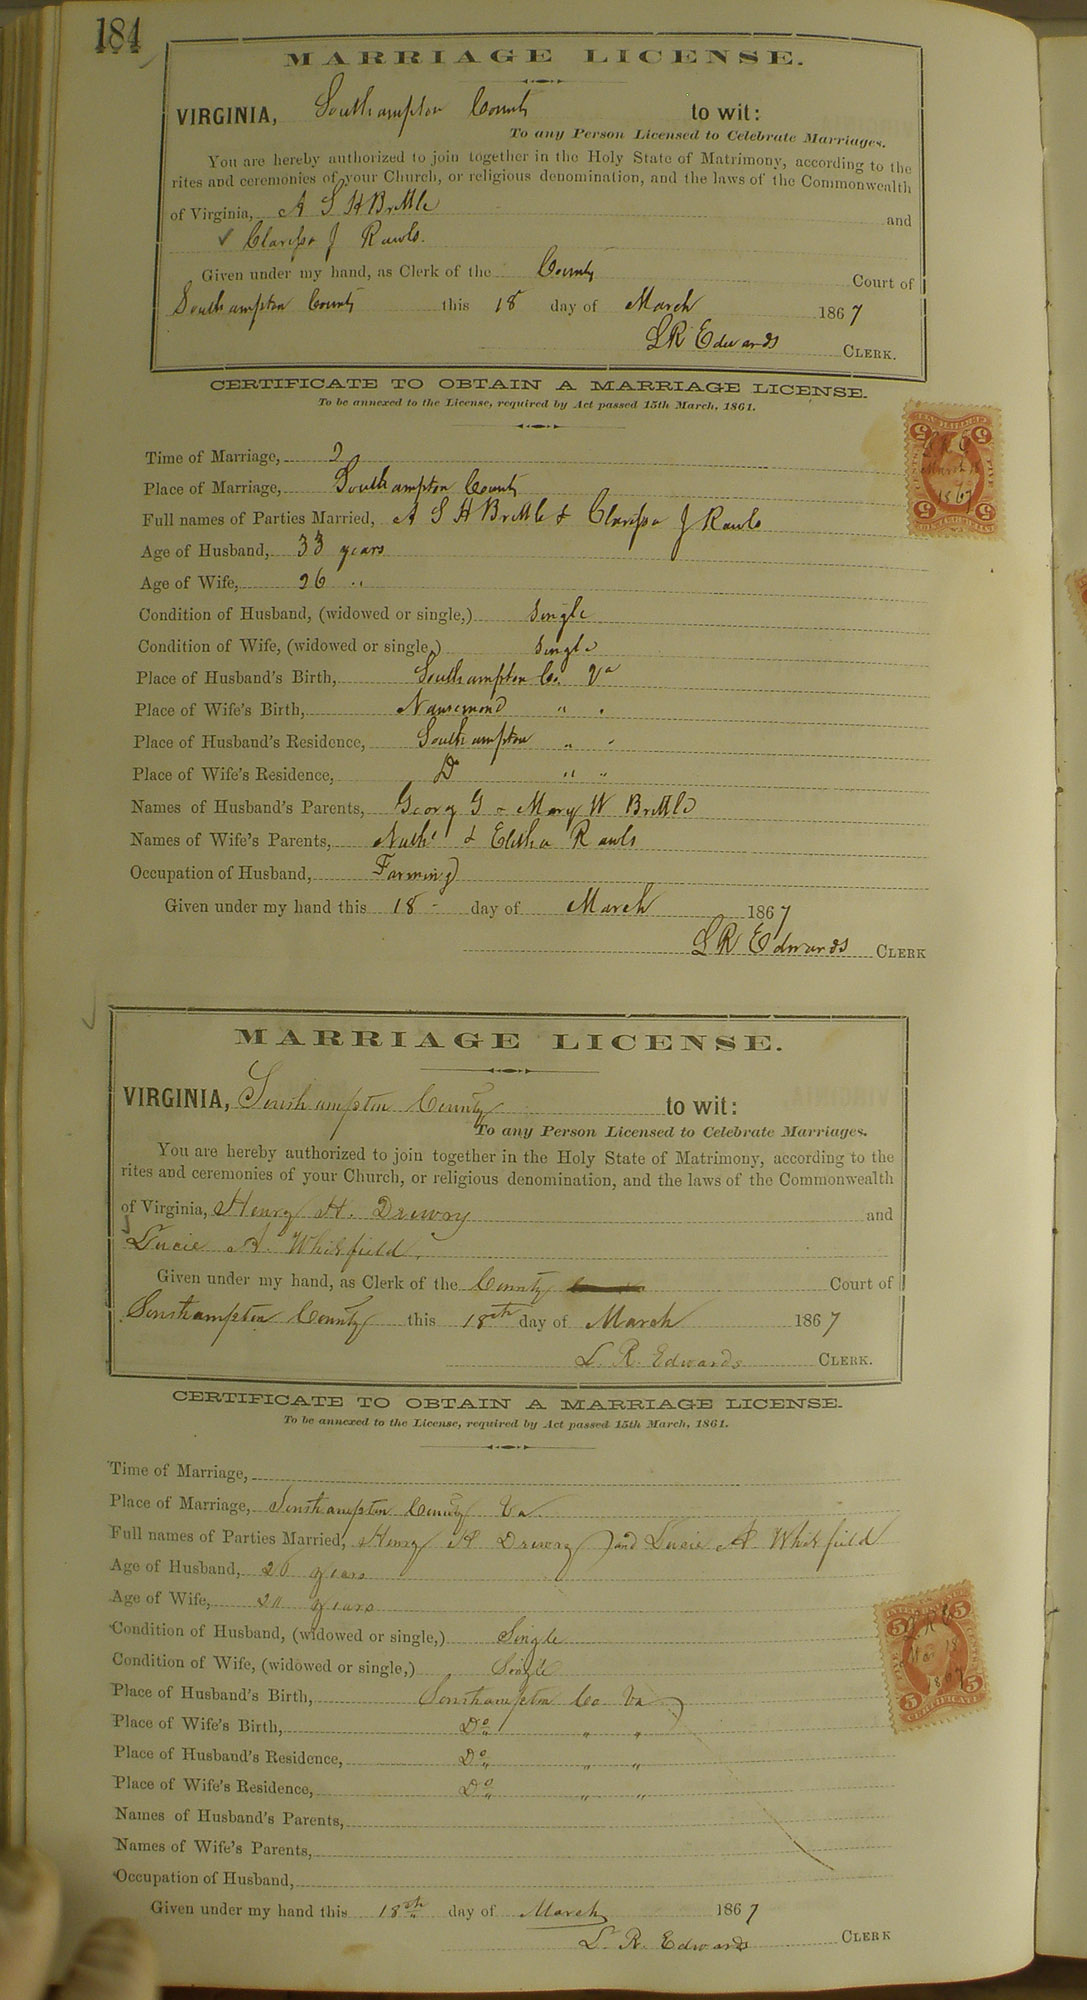 184
MARRIAGE LICENSE.
VIRGINIA, Southampton County to wit:
To any Person Licensed to Celebrate Marriages.
You are hereby authorized to join together in the Holy State of Matrimony, according to the
rites and ceremonies of your Church, or religious denomination, and the laws of the Commonwealth
of Virginia, A S H Brittle and
Clarissa J Rawls.
Given under my hand, as Clerk of the County Court of
Southampton County this 18 day of March 1867
L R Edwards CLERK.
CERTIFICATE TO OBTAIN A MARRIAGE LICENSE.
To be annexed to the License, required by Act passed 15th March, 1861.
Time of Marriage,
Place of Marriage, Southampton County
Full names of Parties Married, A S H Brittle & Clarissa J Rawls
Age of Husband, 33 years
Age of Wife, 26 "
Condition of Husband, (widowed or single,) Single
Condition of Wife, (widowed or single,) Single
Place of Husband's Birth, Southampton Co. Va
Place of Wife's Birth, Nansemond " "
Place of Husband's Residence, Southampton " "
Place of Wife's Residence, Do " "
Names of Husband's Parents, Georg G & Mary W Brittle
Names of Wife's Parents, Nathl & Rawls
Occupation of Husband, Farming
Given under my hand this 18 day of March 1867
L R Edwards CLERK
5 5
LRE
March 18
1867
5 5
MARRIAGE LICENSE.
VIRGINIA, Southampton County to wit:
To any Person Licensed to Celebrate Marriages.
You are hereby authorized to join together in the Holy State of Matrimony, according to the
rites and ceremonies of your Church, or religious denomination, and the laws of the Commonwealth
of Virginia, Henry H. Drewry and
Lucie A. Whitfield.
Given under my hand, as Clerk of the County Court of
Southampton County this 18th day of March 1867
L. R. Edwards CLERK.
CERTIFICATE TO OBTAIN A MARRIAGE LICENSE.
To be annexed to the License, required by Act passed 15th March, 1861.
Time of Marriage,
Place of Marriage, Southampton County Va.
Full names of Parties Married, Henry H Drewry and Lucie A Whitfield
Age of Husband, years
Age of Wife, years
Condition of Husband, (widowed or single,) Single
Condition of Wife, (widowed or single,) Single
Place of Husband's Birth, Southampton Co Va
Place of Wife's Birth, Do " "
Place of Husband's Residence, Do " "
Place of Wife's Residence, Do " "
Names of Husband's Parents,
Names of Wife's Parents,
Occupation of Husband,
Given under my hand this 18th day of March 1867
L. R. Edwards CLERK
5 5
LRE
Mar 18
1867
5 5
CERTIFICATE